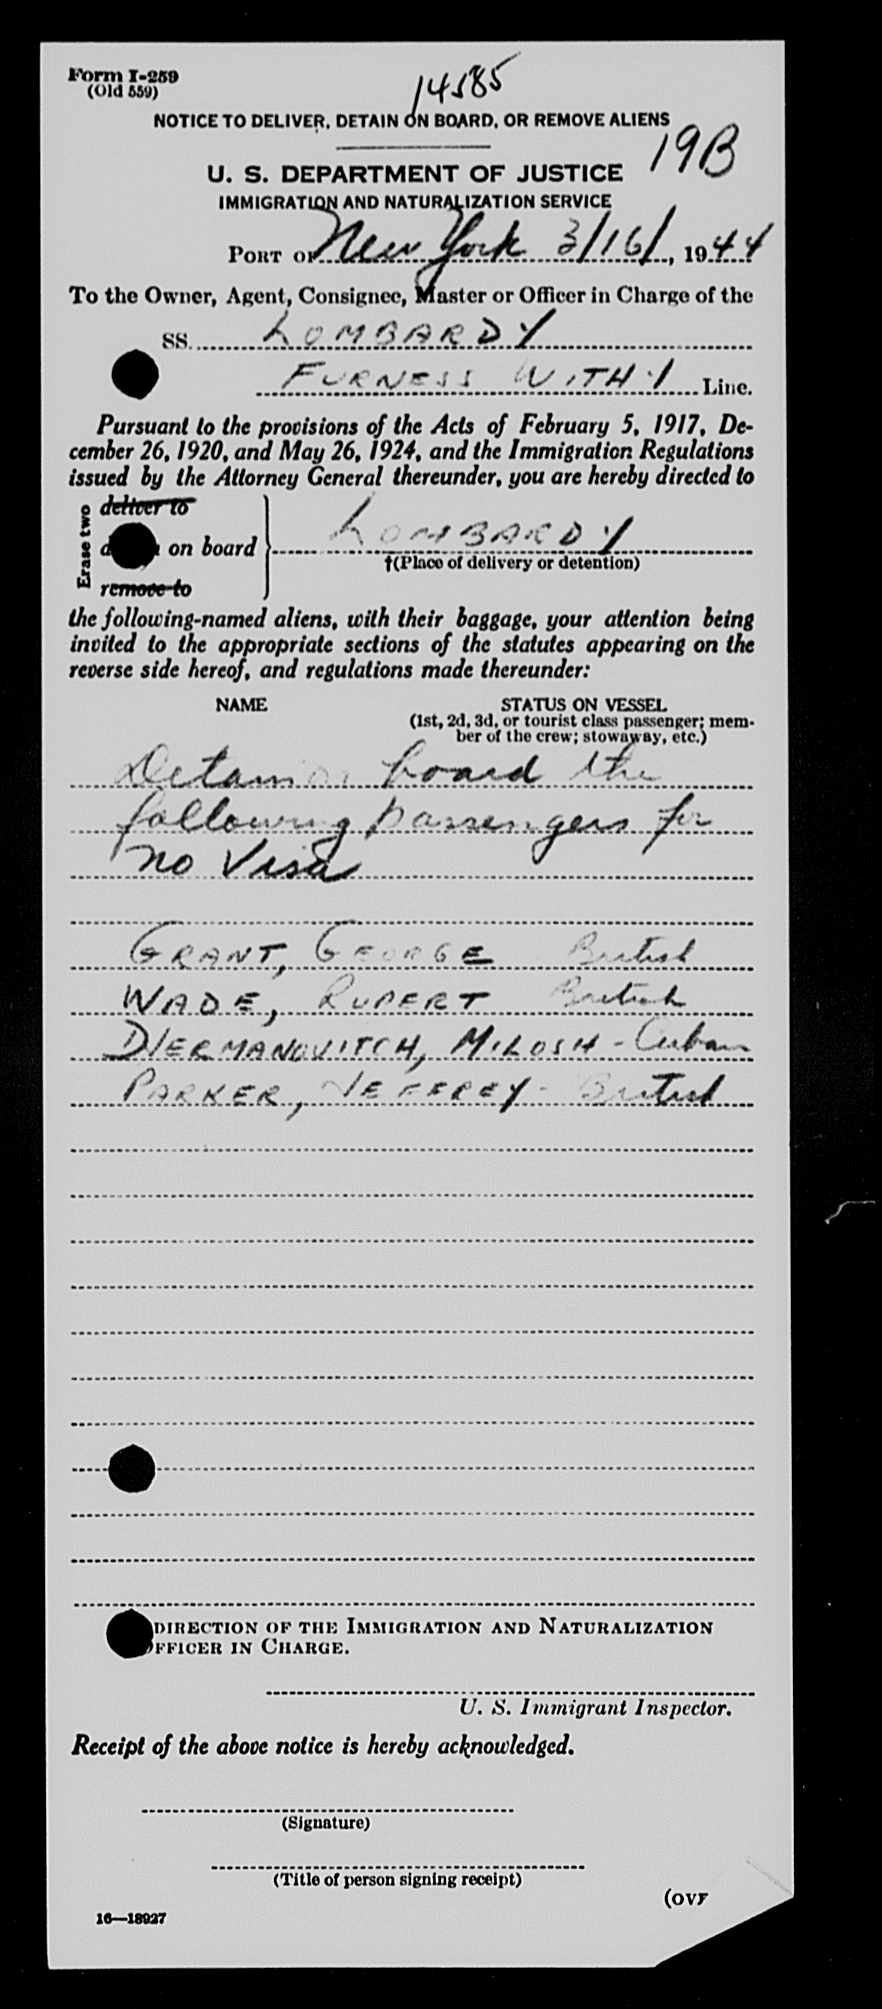 Form I-259
(Old 559)
14585
NOTICE TO DELIVER, DETAIN ON BOARD, OR REMOVE ALIENS
19B
U. S. DEPARTMENT OF JUSTICE
IMMIGRATION AND NATURALIZATION SERVICE
PORT OF New York 3/16/, 1944
To the Owner, Agent, Consignee, Master or Officer in Charge of the
SS. LOMBARDY
FURNESS WITHY Line.
Pursuant to the provisions of the Acts of February 5, 1917, De-
cember 26, 1920, and May 26, 1924, and the Immigration Regulations
issued by the Attorney General thereunder, you are hereby directed to
Erase two
deliver to
on board
LOMBARDY
†(Place of delivery or detention)
remove to
the following-named aliens, with their baggage, your attention being
invited to the appropriate sections of the statutes appearing on the
reverse side hereof, and regulations made thereunder:
NAME STATUS ON VESSEL
(1st, 2d, 3d, or tourist class passenger; mem-
ber of the crew; stowaway, etc.)
Detain on board the
following passengers for
no Visa
GRANT, GEORGE British
WADE, RUPERT British
DJERMANOVITCH, MILOSH - Cuban
PARKER, JEFFREY - British
DIRECTION OF THE IMMIGRATION AND NATURALIZATION
OFFICER IN CHARGE.
U. S. Immigrant Inspector.
Receipt of the above notice is hereby acknowledged.
(Signature)
(Title of person signing receipt)
(OVE
16—18927